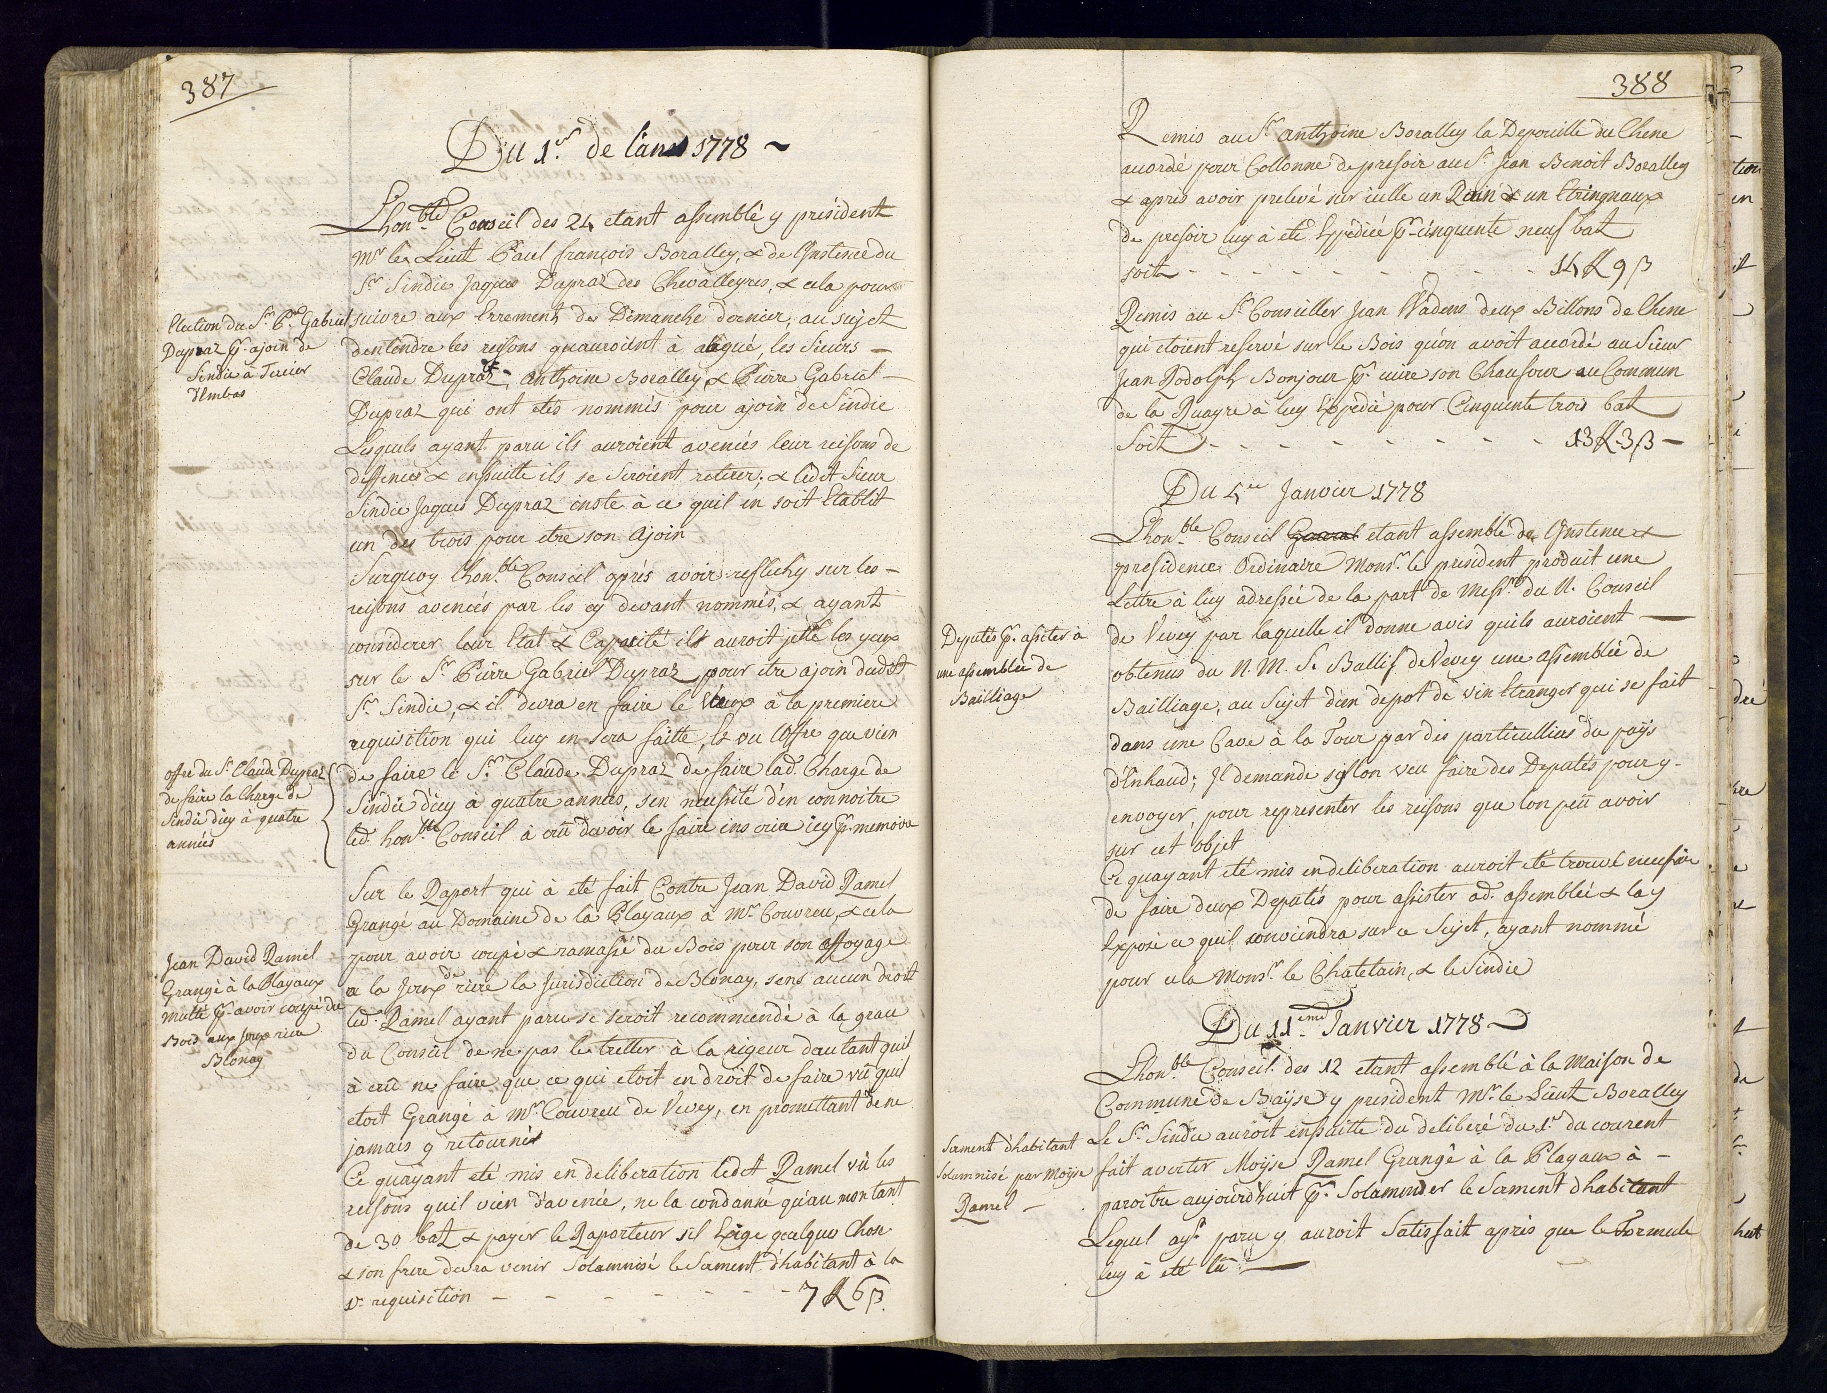 387
Du 1.er de l'anes 1778 ~
Lhon.ble Conseil des 24 etant assemblé y president
Mr le Lieut Paul françois Boralley, & de l'Instence du
Sr Sindic Jaques Dupraz des Chevalleyres, & cela pour
Election du Sr P.re Gabriel
Dupraz pr ajoin de
Sindic à Tercier
d'Embas
suivre aux Errements de Dimanche dernier, au sujet
d'entendre les reisons quauroient à alegué, les Sieurs —
Claude Dupraz, Anthoine Boralley & Pierre Gabriel —
Dupraz qui ont etés nommés pour ajoin de Sindic
Lesquels ayant paru ils auroient avencés leur reisons de
deffences & ensuitte ils se seroient retirer; & ledt Sieur
Sindic Jaques Dupraz inste à ce quil en soit Etablit
un des trois pour etre son Ajoin
Surquoy Lhon.ble Conseil aprés avoir reflechy sur les —
reisons avencés par les cy devant nommés, & ayant
considerer leur Etat & Capacité ils auroit jetté les yeux
sur le Sr Pierre Gabriel Dupraz pour etre ajoin dudt
Sr Sindic, & il devra en faire le Veux à la premiere
requisition qui luy en sera faitte, Et vu l'offre que vien
offre du Sr Claude Dupraz
de faire la Charge de
Sindic d'icy à quatre
années
de faire le Sr Claude Dupraz de faire lad. Charge de
Sindic d'icy à quatre années, sen necessité d'en connoitre
led. hon.ble Conseil à crû devoir le faire inscrire icy pr memoire
Sur le Raport qui à eté fait Contre Jean David Ramel
Grangé au Domaine de la Playaux à Mr Couvreu, & cela
Jean David Ramel
Grangé à la Playaux
multé pr avoir coupé du
Bois aux joux riere
Blonay
pour avoir coupé & ramassé du Bois pour son affoyage
a la Joux de riere la Jurisdiction de Blonay, sens aucun droit
led. Ramel ayant paru se seroit recommendé à la grau
du Conseil de ne pas le tretter à la rigeur d'autant quil
à crû ne faire que ce qui etoit en droit de faire vû quil
etoit Grangé à Mr Couvreu de Vevey, en promettant de ne
jamais y retourner
Ce quayant eté mis en deliberation ledt Ramel vû les
reisons quil vien d'avencé, ne la condanné qu'au montant
de 30 batz & payer le Raporteur s'il Exige quelque Chose
& son frere devra venir Solamnisé le Serment d'habitant à la
1re requisition — — — — — — 7 ℔ 6 β.
388
Remis au Sr Anthoine Boralley la Depouille du Chene
acordé pour Collonne de presoir au Sr Jean Benoit Boralley
& aprés avoir prelevé sur icelle un & un
de presoir luy à eté Expediée pr cinquente neuf bat
soit - - - - - - - - 14 ℔ 9 β
Remis au Sr Conseiller Jean Wadens deux Billons de Chene
qui etoient reservé sur le Bois qu'on avoit acordé au Sieur
Jean Rodolph Bonjour pr cuire son Chaufour au Commun
de la Ruayre à luy Expedié pour Cinquente trois bat
Soit - - - - - - - 13 ℔ 3 β —
Du 4me Janvier 1778
Lhon.ble Conseil General etant assemblé de l'Instence &
presidence Ordinaire Monsr le president produit une
Lettre à luy adressée de la part de Messrs du N. Conseil
Deputés pr assiter à
une assemblée de
Bailliage
de Vevey par laquelle il donne avis quils auroient —
obtenus du N. M. S. Ballif de Vevey une assemblée de
Bailliage, au Sujet d'un depot de vin Etranger qui se fait
dans une Cave à la Tour par des particulliers du pays
d'Enhaud; Il demande si l'on veu faire des Deputés pour y-
envoyer, pour representer les reisons que lon peu avoir
sur cet objet
Ce quayant eté mis en deliberation auroit eté trouvé necessaire
de faire deux Deputés pour assister ad. assemblée & la y
Exposé ce quil convciendra sur ce Sujet, ayant nommé
pour cela Monsr le Chatelain, & le Sindic
Du 11eme Janvier 1778
Lhon.ble Conseil des 12 etant assemblé à la Maison de
Commune de Bayse y president Mr le Lieut Boralley
Le Sr Sindic auroit ensuitte du deliberé du 1er du courent
Serment d'habitant
solamnisé par Moyse
Ramel —
fait avertir Moyse Ramel Grangé à la Playaux à —
paroitre aujourd'huit pr Solamniser le Serment d'habitant
Lequel ayt paru y auroit Satisfait aprés que le Formule
luy à eté lû —